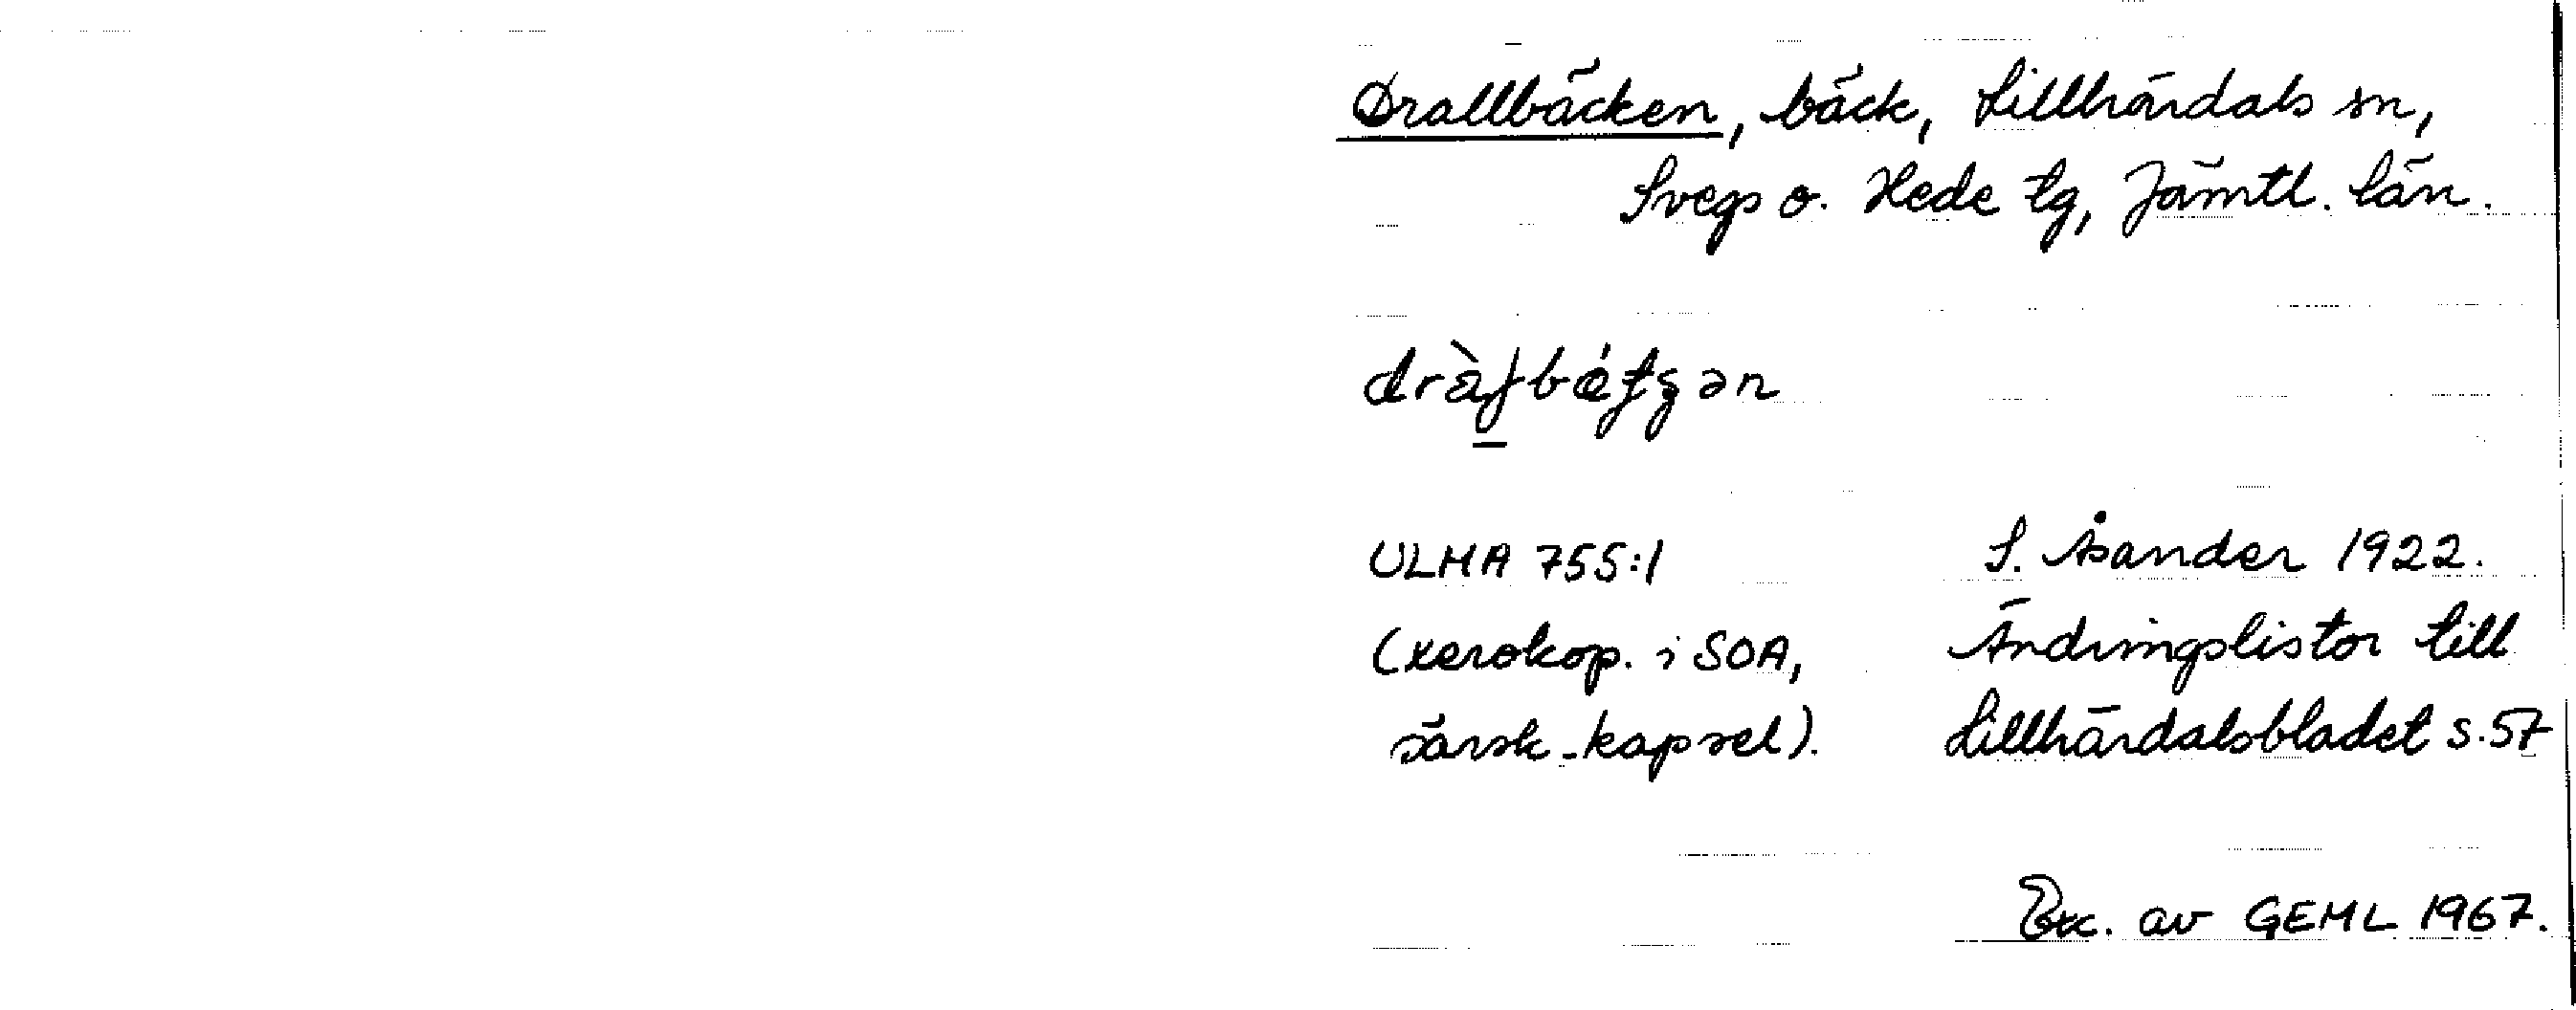 Drallbäcken, bäck, Lillhärdals sn,
Svegs o. Hede tg, Jämtl. län.
ULMA 755:1 S. Åsander 1922.
(xerokop. i SOA, Ändringslistor till
särsk. kapsel). Lillhärdalsbladet s. 57
Exc. av GEML 1967.